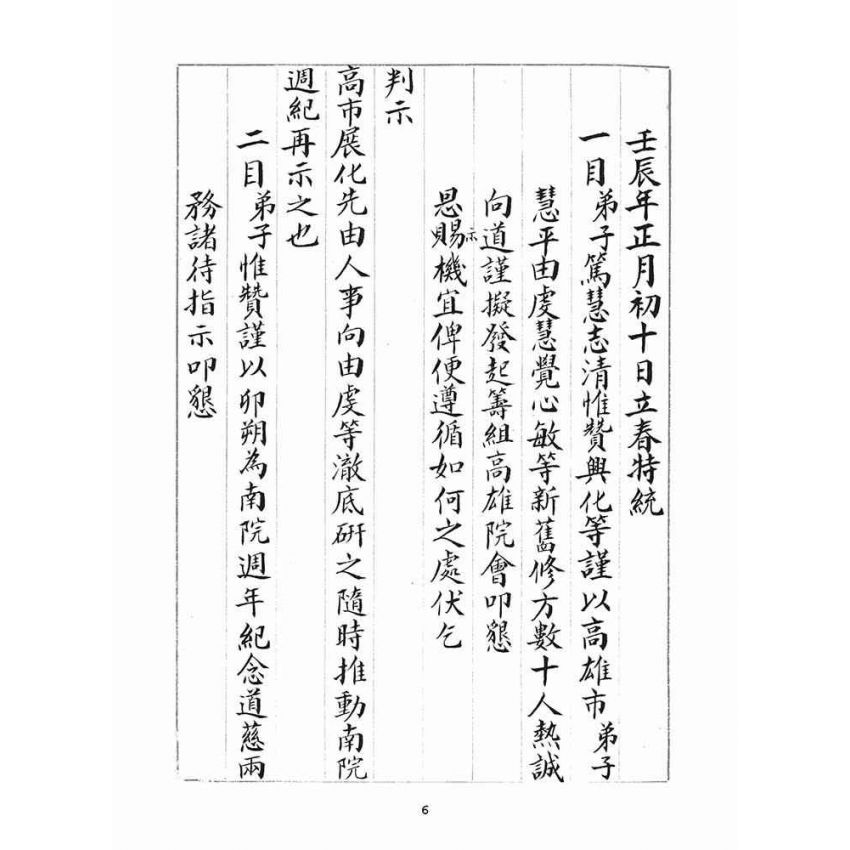 壬辰年正月初十日立春特統
一目弟子篤慧志清惟贊興化等謹以高雄市弟子
慧平由虔慧覺心敏等新舊修方數十人熱誠
向道謹擬發起籌組高雄院會叩懇
恩賜示機宜俾便遵循如何之處伏乞
判示
高市展化先由人事向由虔等澈底研之隨時推動南院
週紀再示之也
二目弟子惟贊謹以卯朔為南院週年紀念道慈兩
務諸待指示叩懇
6